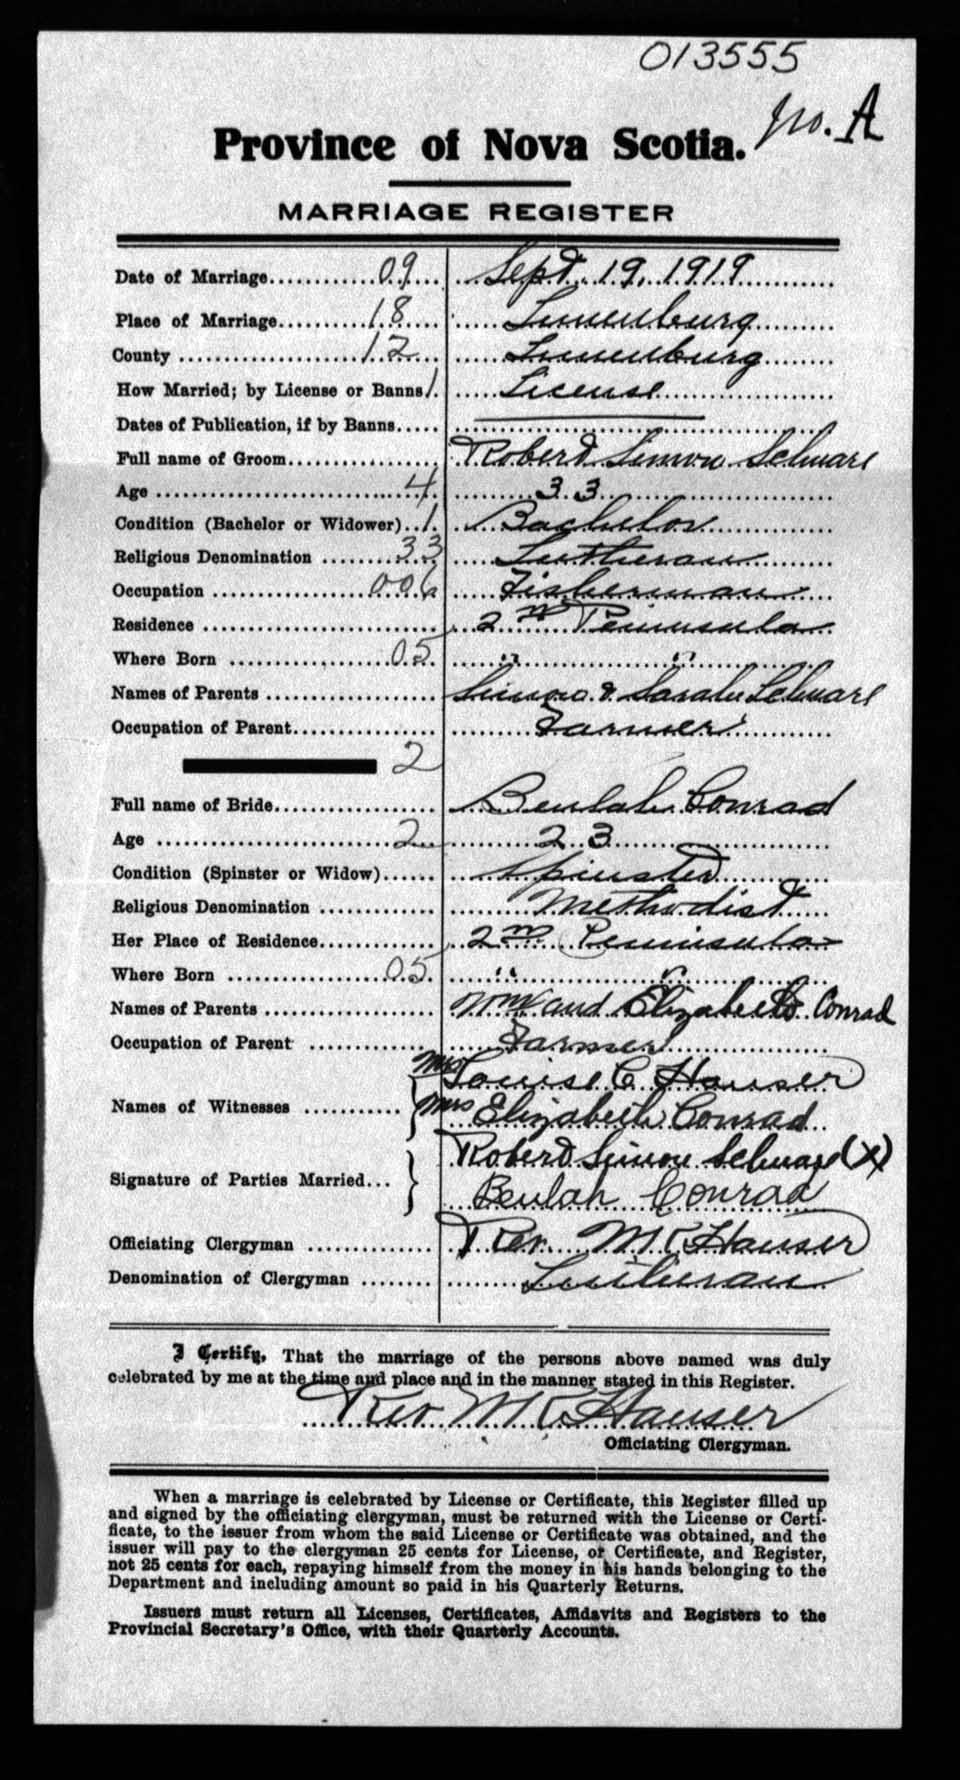 013555
No. A
Province of Nova Scotia.
MARRIAGE REGISTER
Date of Marriage 09 Sept 19, 1919
Place of Marriage 18 Lunenburg
County 12 Lunenburg
How Married; by License or Banns 1 License
Dates of Publication, if by Banns
Full name of Groom Robert Simon
Age 4 33
Condition (Bachelor or Widower) 1 Bachelor
Religious Denomination 33 Lutheran
Occupation 006 Fisherman
Residence 2nd Peninsula
Where Born 05 " "
Names of Parents Simon & Sarah
Occupation of Parent Farmer
2
Full name of Bride Beulah Conrad
Age 2 23
Condition (Spinster or Widow) Spinster
Religious Denomination Methodist
Her Place of Residence 2nd Peninsula
Where Born 05 " "
Names of Parents Wm and Elizabeth Conrad
Occupation of Parent Farmer
Mrs Louise C Hauser
Names of Witnesses Mrs Elizabeth Conrad
Robert Simon (X)
Signature of Parties Married Beulah Conrad
Officiating Clergyman Rev. M K Hauser
Denomination of Clergyman Lutheran
I Certify, That the marriage of the persons above named was duly
celebrated by me at the time and place and in the manner stated in this Register.
Rev M K Hauser
Officiating Clergyman.
When a marriage is celebrated by License or Certificate, this Register filled up
and signed by the officiating clergyman, must be returned with the License or Certi-
ficate, to the issuer from whom the said License or Certificate was obtained, and the
issuer will pay to the clergyman 25 cents for License, or Certificate, and Register,
not 25 cents for each, repaying himself from the money in his hands belonging to the
Department and including amount so paid in his Quarterly Returns.
Issuers must return all Licenses, Certificates, Affidavits and Registers to the
Provincial Secretary's Office, with their Quarterly Accounts.